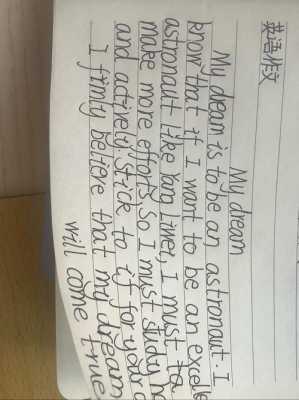 英语作文
My dream
My dream is to be an astronaut. I
know that if I want to be an excelle
astronaut like Yang Liwei, I must ta
make more efforts. So I must study ha
and actively. Stick to it for your d
I firmly believe that my dream
will come true